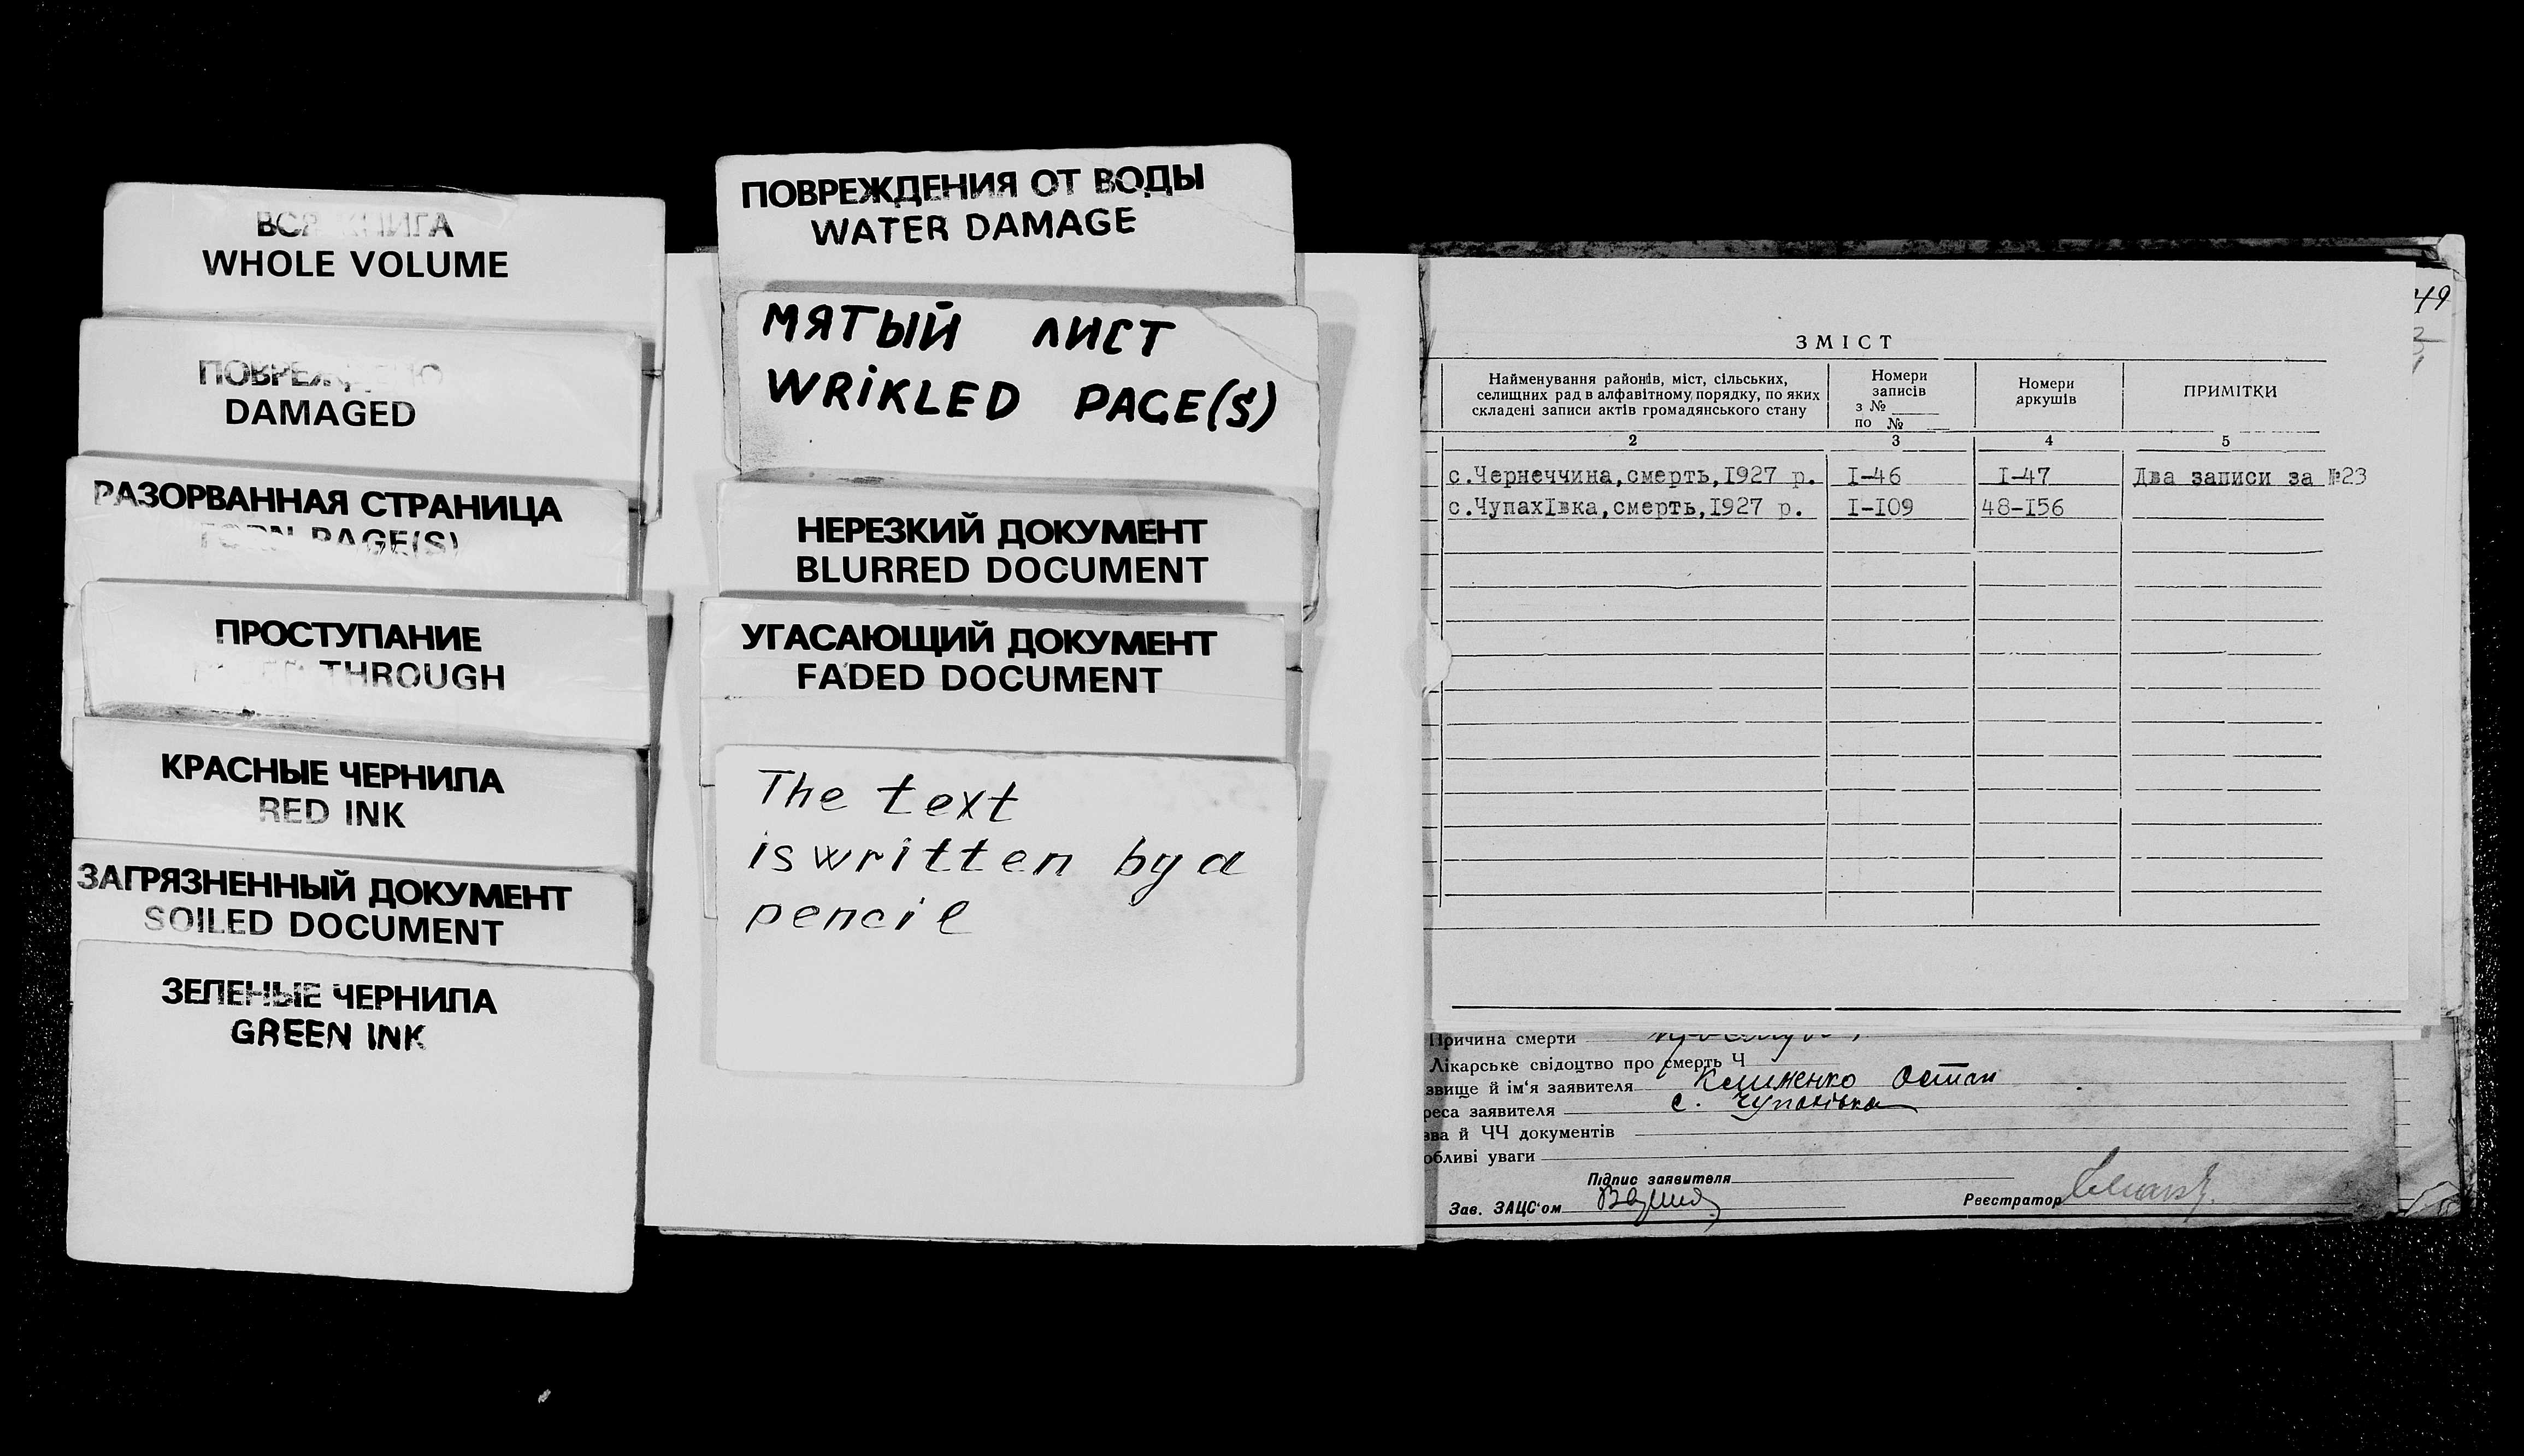 ВСЯ КНИГА
WHOLE VOLUME
ПОВРЕЖДЕНО
DAMAGED
РАЗОРВАННАЯ СТРАНИЦА
TORN PAGE(S)
ПРОСТУПАНИЕ
THROUGH
КРАСНЫЕ ЧЕРНИЛА
RED INK
ЗАГРЯЗНЕННЫЙ ДОКУМЕНТ
SOILED DOCUMENT
ЗЕЛЕНЫЕ ЧЕРНИЛА
GREEN INK
ПОВРЕЖДЕНИЯ ОТ ВОДЫ
WATER DAMAGE
МЯТЫЙ ЛИСТ
WRIKLED PAGE(S)
НЕРЕЗКИЙ ДОКУМЕНТ
BLURRED DOCUMENT
УГАСАЮЩИЙ ДОКУМЕНТ
FADED DOCUMENT
The text
is written by a
pencil
49
ЗМІСТ
Найменування районів, міст, сільських,
селищних рад в алфавітному порядку, по яких
складені записи актів громадянського стану
Номери
записів
з №
по №
Номери
аркушів
ПРИМІТКИ
2 3 4 5
с.Чернеччина,смерть,I927 р. I-46 I-47 Два записи за №23
с.ЧупахІвка,смерть,I927 р. I-I09 48-I56
Причина смерти
Лікарське свідоцтво про смерть Ч
звище й ім'я заявителя Клименко Остап
реса заявителя с. Чупахівка
зва й ЧЧ документів
обливі уваги
Підпис заявителя
Зав. ЗАЦС'ом
Реєстратор